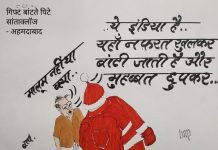 गिफ्ट बांटते पिटे
सांताक्लॉज
- अहमदाबाद
मालूम नहीं था
क्या..
ये इंडिया है..
यहाँ नफरत खुलकर
बांटी जाती है और
मुहब्बत छुपकर..